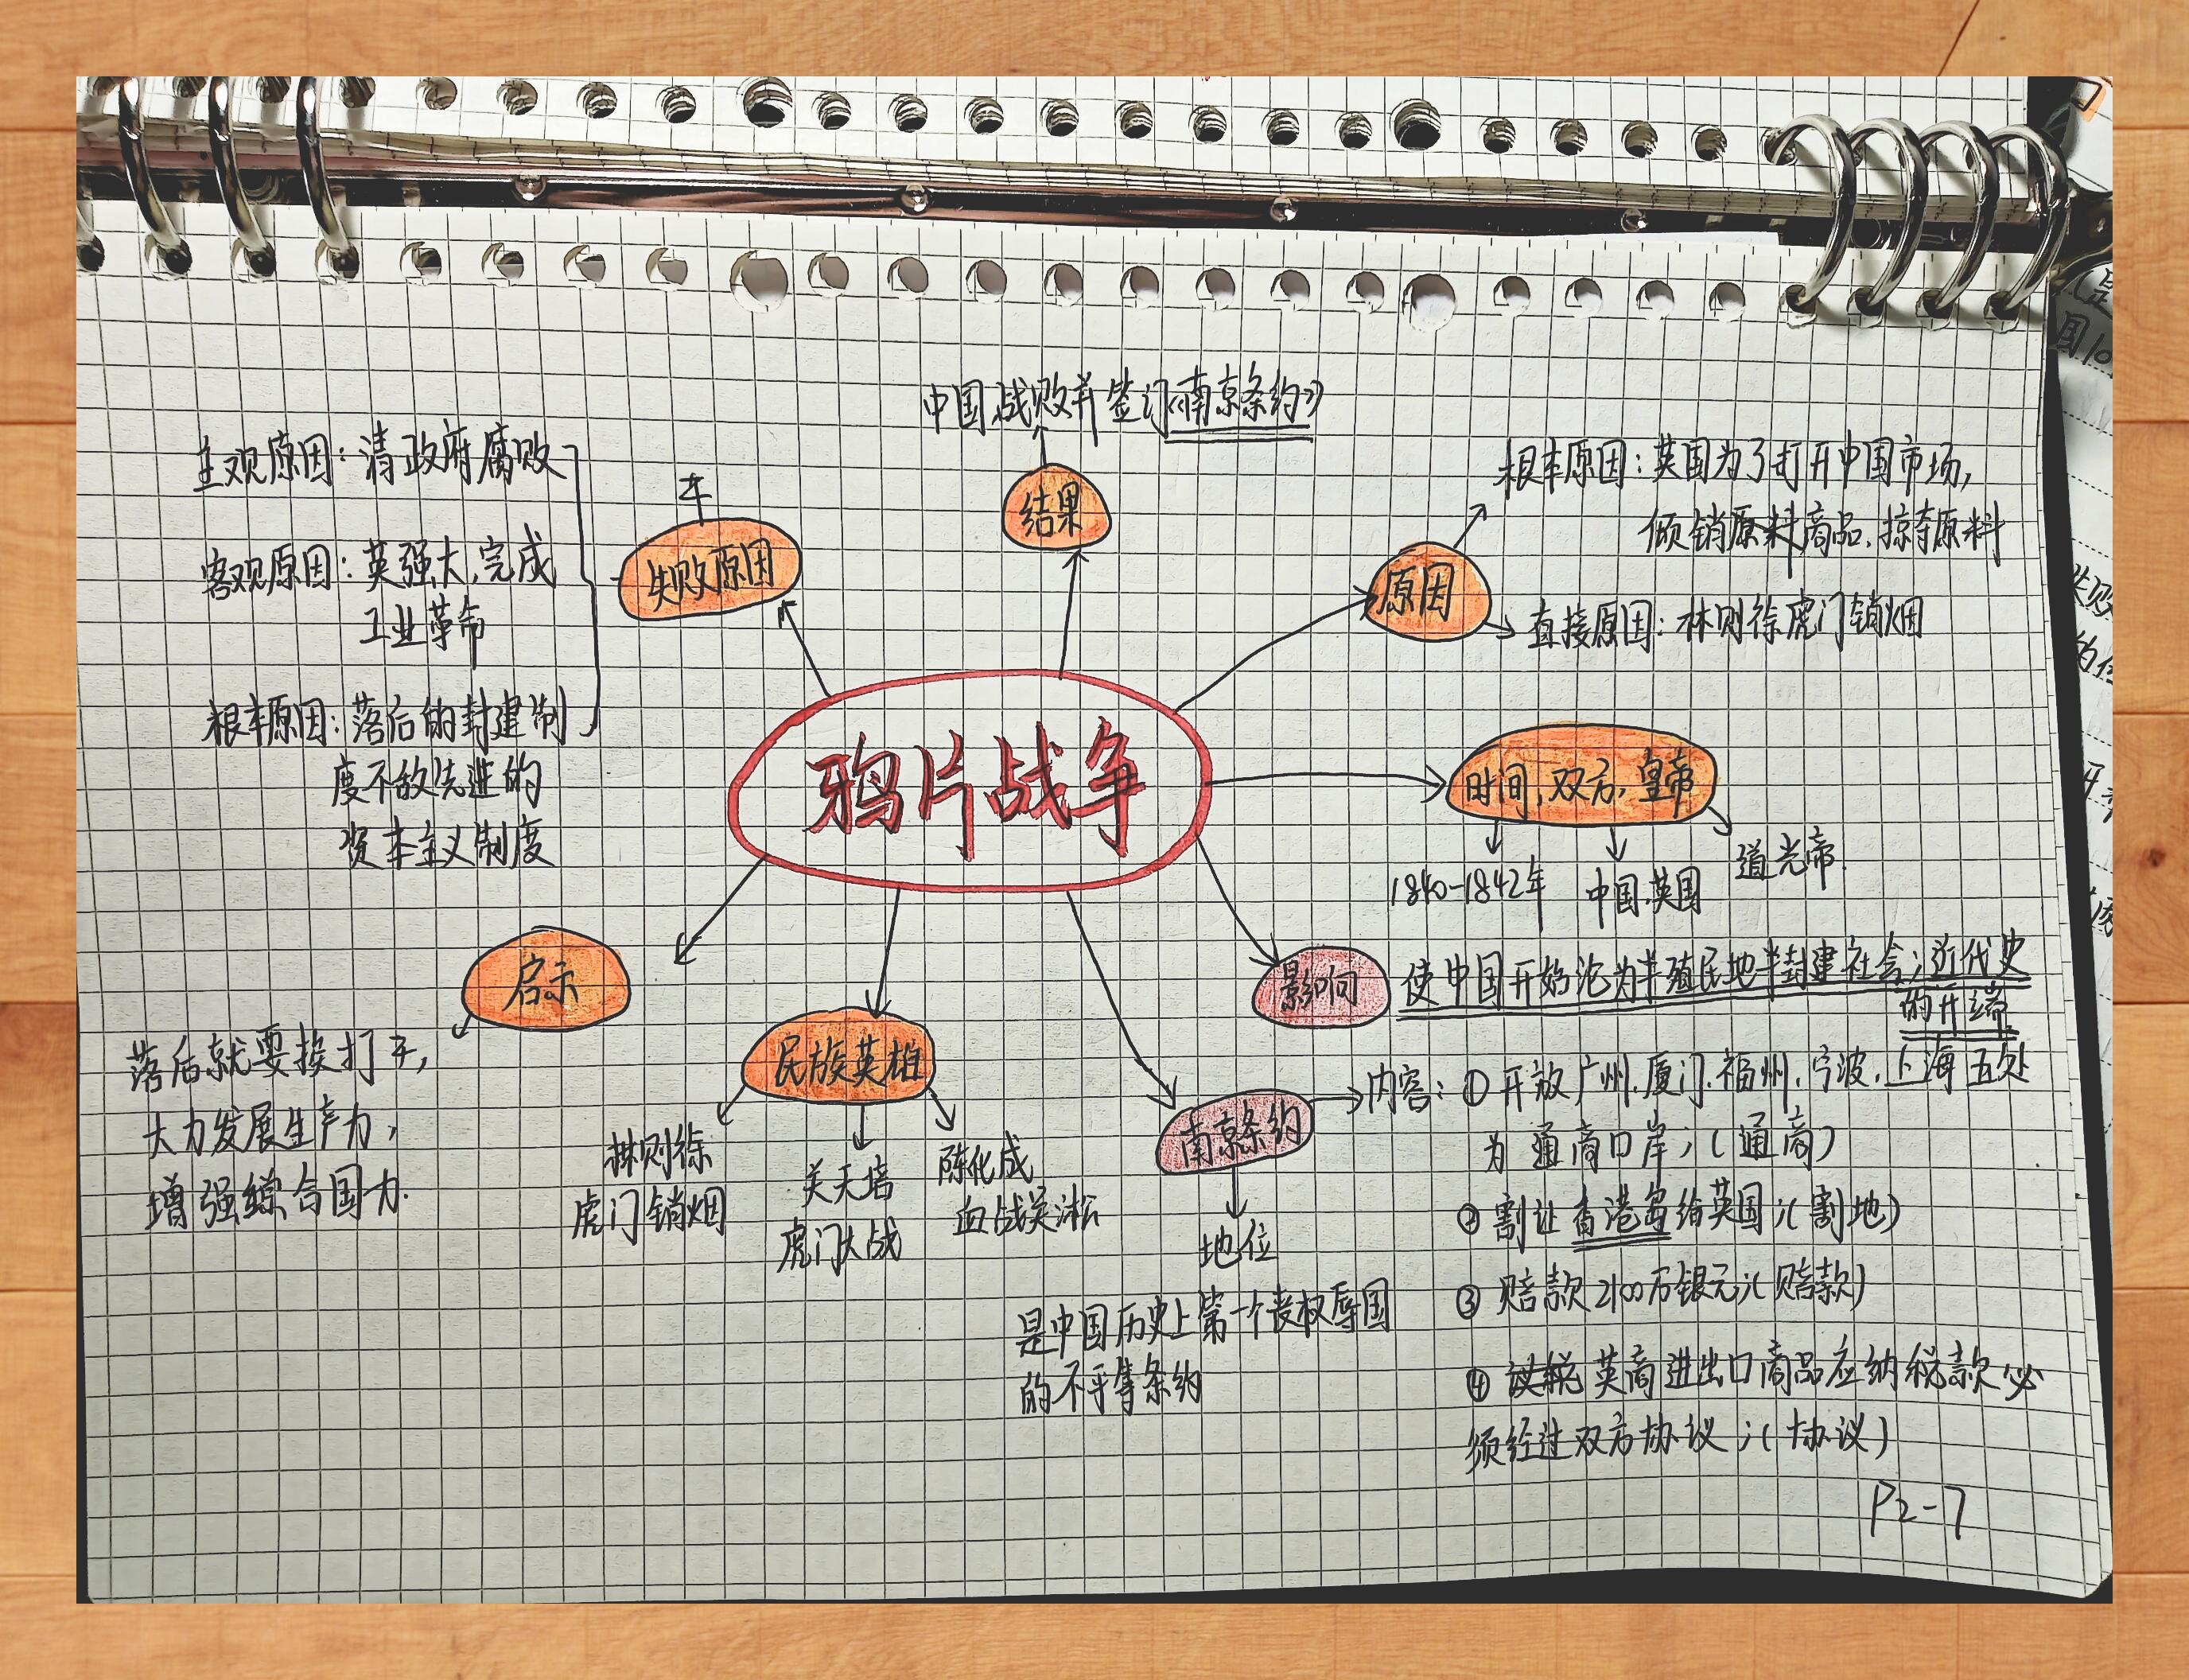 中国战败并签订《南京条约》
结果
主观原因：清政府腐败
客观原因：英强大，完成
工业革命
根本原因：落后的封建制
度不敌先进的
资本主义制度
失败原因
根本原因：英国为了打开中国市场，
倾销原料商品，掠夺原料
原因
直接原因：林则徐虎门销烟
鸦片战争
时间，双方，皇帝
1840-1842年
中国，英国
道光帝
影响
使中国开始沦为半殖民地半封建社会；近代史
的开端
启示
落后就要挨打，
大力发展生产力，
增强综合国力.
民族英雄
林则徐
虎门销烟
关天培
虎门大战
陈化成
血战吴淞
南京条约
地位
是中国历史上第一个丧权辱国
的不平等条约
内容：①开放广州，厦门，福州，宁波，上海五处
为通商口岸；（通商）
②割让香港岛给英国；（割地）
③赔款2100万银元；（赔款）
④议税 英商进出口商品应纳税款必
须经过双方协议；（协议）
P2-7